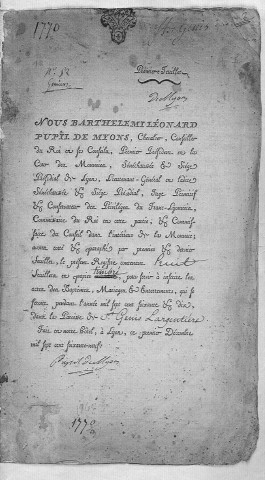 1770
St Genis
N.° 52
Premier Feuillet
Geniez
De Myon
NOUS BARTHELEMI LÉONARD
PUPIL DE MYONS, Chevalier, Conseiller
du Roi en ses Conseils, Premier Président en la
Cour des Monnoies, Sénéchaussée & Siége
Présidial de Lyon, Lieutenant-Général en ladite
Sénéchaussée & Siége Présidial, Juge Primitif
& Conservateur des Priviléges du Franc-Lyonnois,
Commissaire du Roi en cette partie, & Commis-
saire du Conseil dans l'étendue de la Monnoie;
avons coté & paraphé par premier & dernier
feuillet, le présent Registre contenant huit
feuillets en papier timbré pour servir à inscrire les
actes des Baptêmes, Mariages & Enterremens, qui se
feront pendant l'année mil sept cent soixante & dix,
dans la Paroisse de St Genis Largentiere
Fait en notre Hôtel, à Lyon, ce premier Décembre
mil sept cent soixante-neuf.
Pupil De Myon
1770